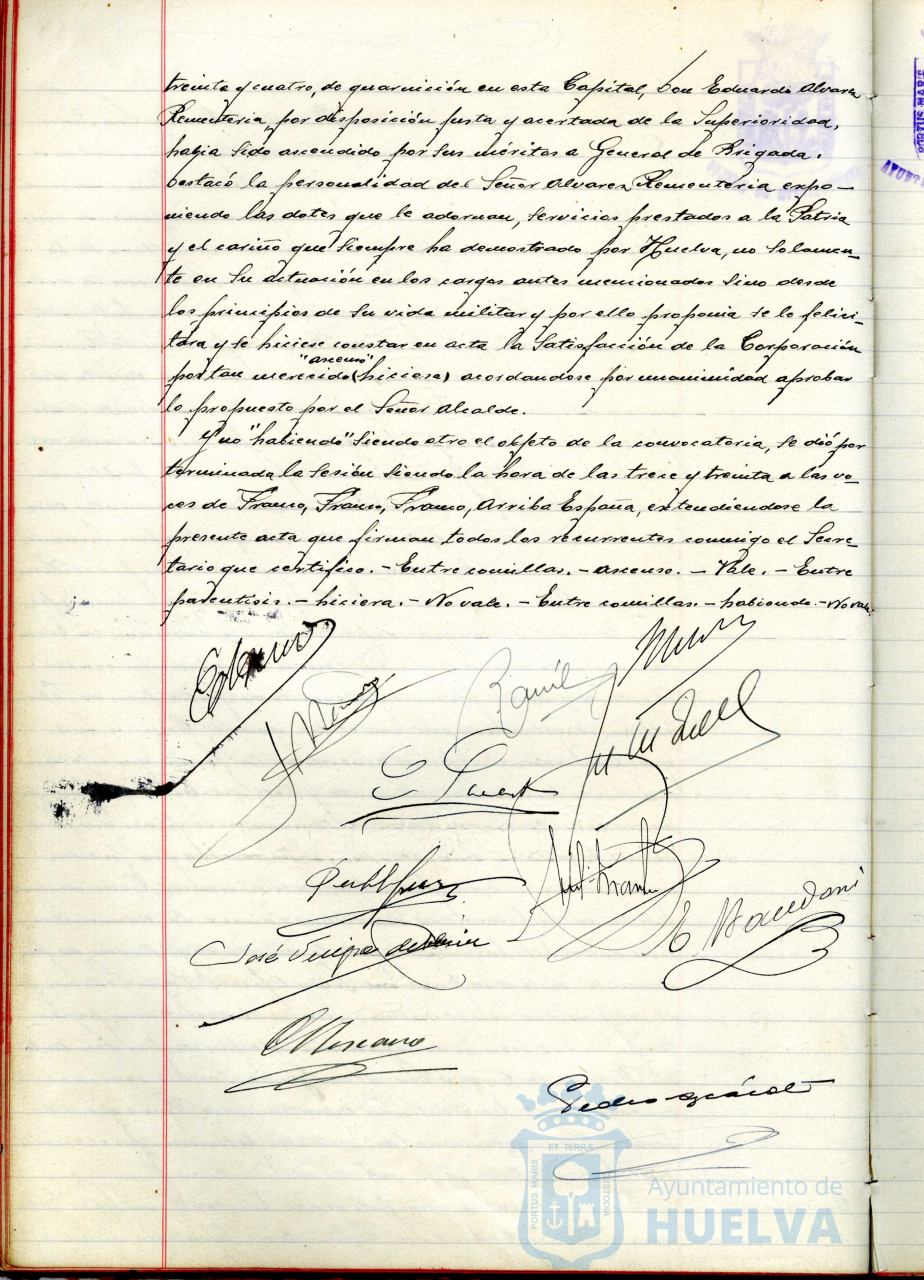 treinta y cuatro, de guarnición en esta Capital, Don Eduardo Alvarez
Rementeria, por disposición justa y acertada de la Superioridad,
habia sido ascendido por sus méritos a General de Brigada.
Destacó la personalidad del Señor Alvarez Rementeria expo-
niendo las dotes que le adornan, servicios prestados a la Patria
y el cariño que siempre ha demostrado por Huelva, no solamen-
te en su actuación en los cargos antes mencionados sino desde
los principios de su vida militar y por ello proponia se le felici-
tara y se hiciese constar en acta la Satisfacción de la Corporación
"ascenso"
por tan merecido (hiciese) acordandose por unanimidad aprobar
lo propuesto por el Señor Alcalde.
Y no "habiendo" siendo otro el objeto de la convocatoria, se dió por
terminada la sesión siendo la hora de las trece y treinta a las vo-
ces de Franco, Franco, Franco, Arriba España, extendiendose la
presente acta que firman todos los recurrentes conmigo el Secre-
tario que certifico.- Entre comillas.- ascenso.- Vale.- Entre
parentisis.- hiciera.- No vale.- Entre comillas.- habiendo.- No vale.
José
PORTUS MARIS
ET TERRÆ
CUSTODIA
Ayuntamiento de
HUELVA